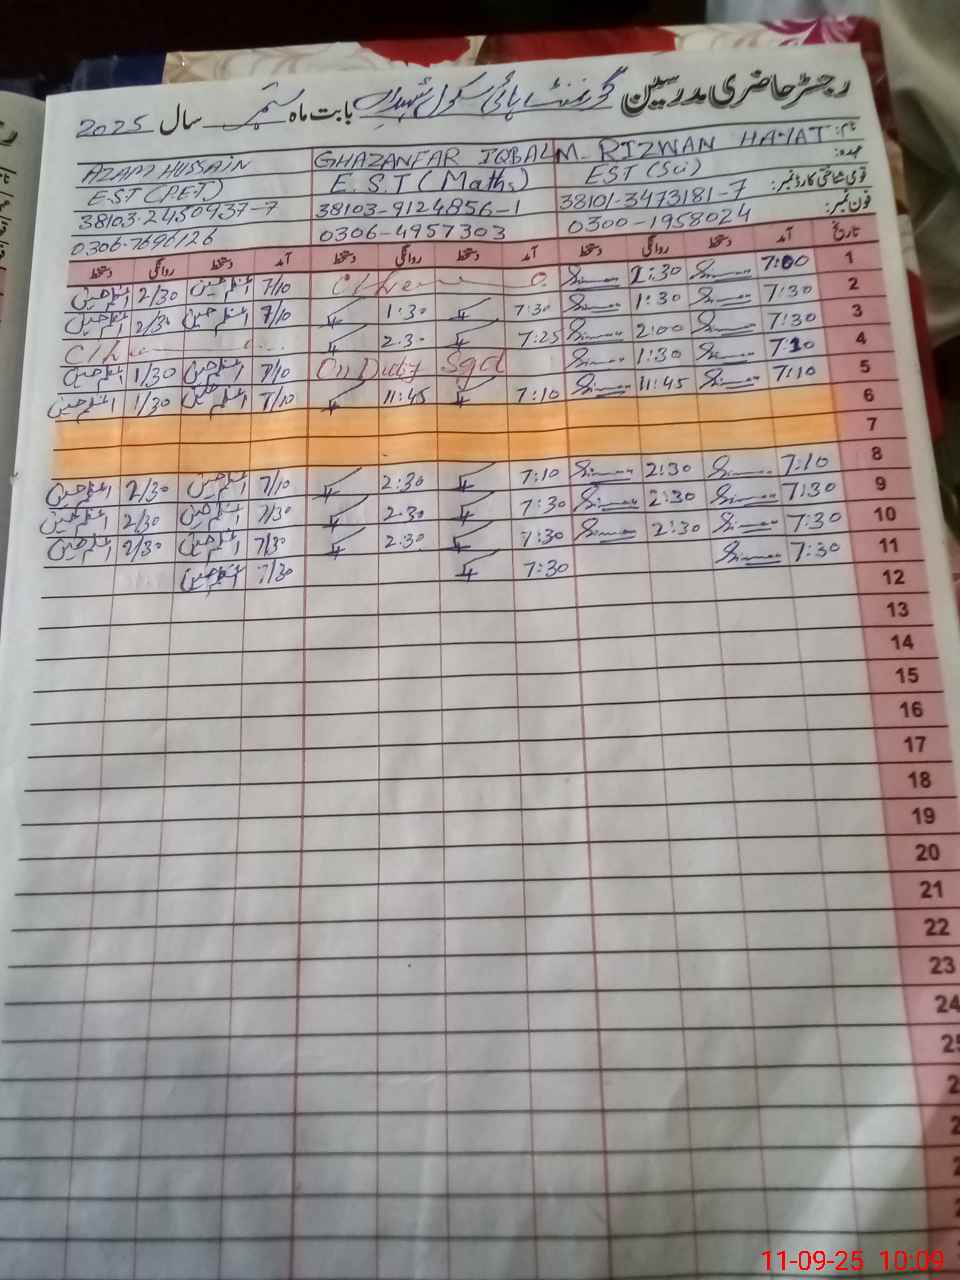 رجسٹر حاضری مدرسین گورنمنٹ ہائی سکول بابت ماہ ستمبر سال 2025
نام: M. RIZWAN HAYAT GHAZANFAR IQBAL AZAM HUSSAIN
عہدہ: EST (Sci) E.S.T (Maths) EST (PET)
قومی شناختی کارڈ نمبر: 38101-3473181-7 38103-9124856-1 38103-2450937-7
فون نمبر: 0300-1958024 0306-4957303 0306-7696126
تاریخ آمد دستخط روانگی دستخط آمد دستخط روانگی دستخط آمد دستخط روانگی دستخط
1 7:00 2:30 7/10 اعظم حسین 2/30 اعظم حسین
2 7:30 1:30 7:30 1:30 7/10 اعظم حسین 2/30 اعظم حسین
3 7:30 2:00 7:25 2:30
4 7:10 1:30 On Duty Sgd 7/10 اعظم حسین 1/30 اعظم حسین
5 7:10 11:45 7:10 11:45 7/10 اعظم حسین 1/30 اعظم حسین
6
7
8 7:10 2:30 7:10 2:30 7/10 اعظم حسین 2/30 اعظم حسین
9 7:30 2:30 7:30 2:30 7/30 اعظم حسین 2/30 اعظم حسین
10 7:30 2:30 7:30 2:30 7/30 اعظم حسین 2/30 اعظم حسین
11 7:30 7:30 7/30 اعظم حسین
12
13
14
15
16
17
18
19
20
21
22
23
24
25
11-09-25 10:09